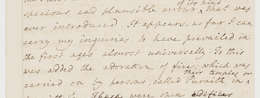 of its kind
specious and plausible error, that was
ever introduced. It appears as far I can
carry my inquiries to have prevailed in
the first ages almost universally. To this
was added the adoration of fire, which was
their temples on
carried on by persons called
These were open edifices